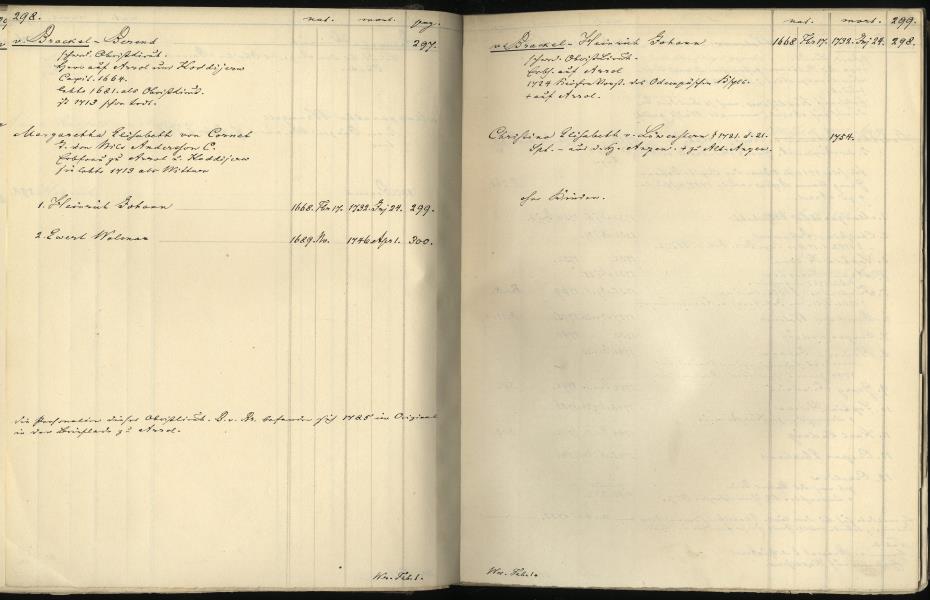 298. nat. mort. pag.
v. Brackel - Berend 297.
schwed. Obristlieut.
Herr auf Arrol und Koddijerw
Capit. 1664.
lebte 1681 als Obristlieut.
ist 1713 schon todt.
Margaretha Elisabeth von Cornet
T. von Nils Anderson C.
Erbfrau zu Arrol u. Koddijerw
sie lebte 1713 als Wittwe
1. Heinrich Johann 1668. 17. 1732. 24. 299.
2. Ewert Wolmar 1689. Nv. 1746 Apr 1. 300.
die Personalien dieses Obristlieut. B. v. Br. befanden sich 1785 im Original
in der Brieflade zu Arrol.
Tab. 1.
nat. mort. 299.
v. Brackel - Heinrich Johann 1668 17. 1732. 24. 298.
schwed. Obristlieut.
Erbh. auf Arrol
1724 Kirchen Vorst. des Odenpäschen Kspls.
† auf Arrol.
Christina Elisabeth v. Löwenstern † 1721. d. 21. 1754.
Spt. - aus d. H. Anzen. † zu Alt-Anzen.
ohne Kinder.
Tab. 1.